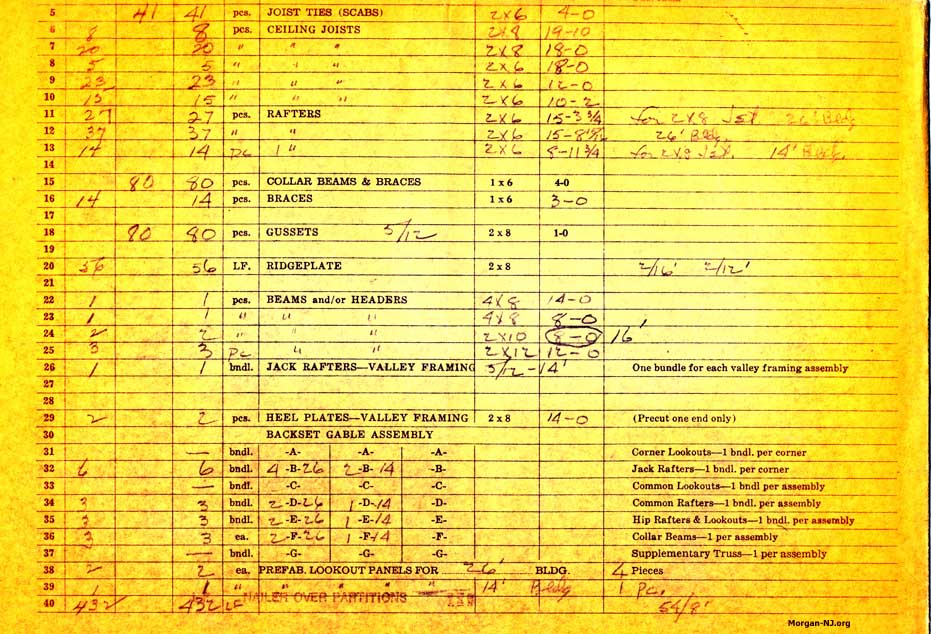 5 41 41 pcs. JOIST TIES (SCABS) 2x6 4-0
6 8 8 pcs. CEILING JOISTS 2x8 19-10
7 20 20 " " " 2x8 18-0
8 5 5 " " " 2x6 18-0
9 23 23 " " " 2x6 12-0
10 15 15 " " " 2x6 10-2
11 27 27 pcs. RAFTERS 2x6 15-3 3/4 for 2x8 Jst. 26' Bldg
12 37 37 " " 2x6 26' Bldg.
13 14 14 pc " 2x6 8-11 3/4 for 2x8 Jst. 14' Bldg.
14
15 80 80 pcs. COLLAR BEAMS & BRACES 1 x 6 4-0
16 14 14 pcs. BRACES 1 x 6 3-0
17
18 80 80 pcs. GUSSETS 5/12 2 x 8 1-0
19
20 56 56 LF. RIDGEPLATE 2 x 8 2/16' 2/12'
21
22 1 1 pcs. BEAMS and/or HEADERS 4x8 14-0
23 1 1 " " " 4x8 8-0
24 2 2 " " " 2x10 8-0 16'
25 3 3 Pc " " 2x12 12-0
26 1 1 bndl. JACK RAFTERS—VALLEY FRAMING 5/12-14' One bundle for each valley framing assembly
27
28
29 2 2 pcs. HEEL PLATES—VALLEY FRAMING 2 x 8 14-0 (Precut one end only)
30 BACKSET GABLE ASSEMBLY
31 — bndl. -A- -A- -A- Corner Lookouts—1 bndl. per corner
32 6 6 bndl. 4 -B-26 2 -B-14 -B- Jack Rafters—1 bndl. per corner
33 — bndl. -C- -C- -C- Common Lookouts—1 bndl per assembly
34 3 3 bndl. 2 -D-26 1 -D-14 -D- Common Rafters—1 bndl. per assembly
35 3 3 bndl. 2 -E-26 1 -E-14 -E- Hip Rafters & Lookouts—1 bndl. per assembly
36 3 3 ea. 2 -F-26 1 -F-14 -F- Collar Beams—1 per assembly
37 — bndl. -G- -G- -G- Supplementary Truss—1 per assembly
38 2 2 ea. PREFAB. LOOKOUT PANELS FOR 26' BLDG. 4 Pieces
39 1 1 " " " " " 14' Bldg 1 Pc.
40 432 432 LF NAILER OVER PARTITIONS 54/8'
Morgan-NJ.org